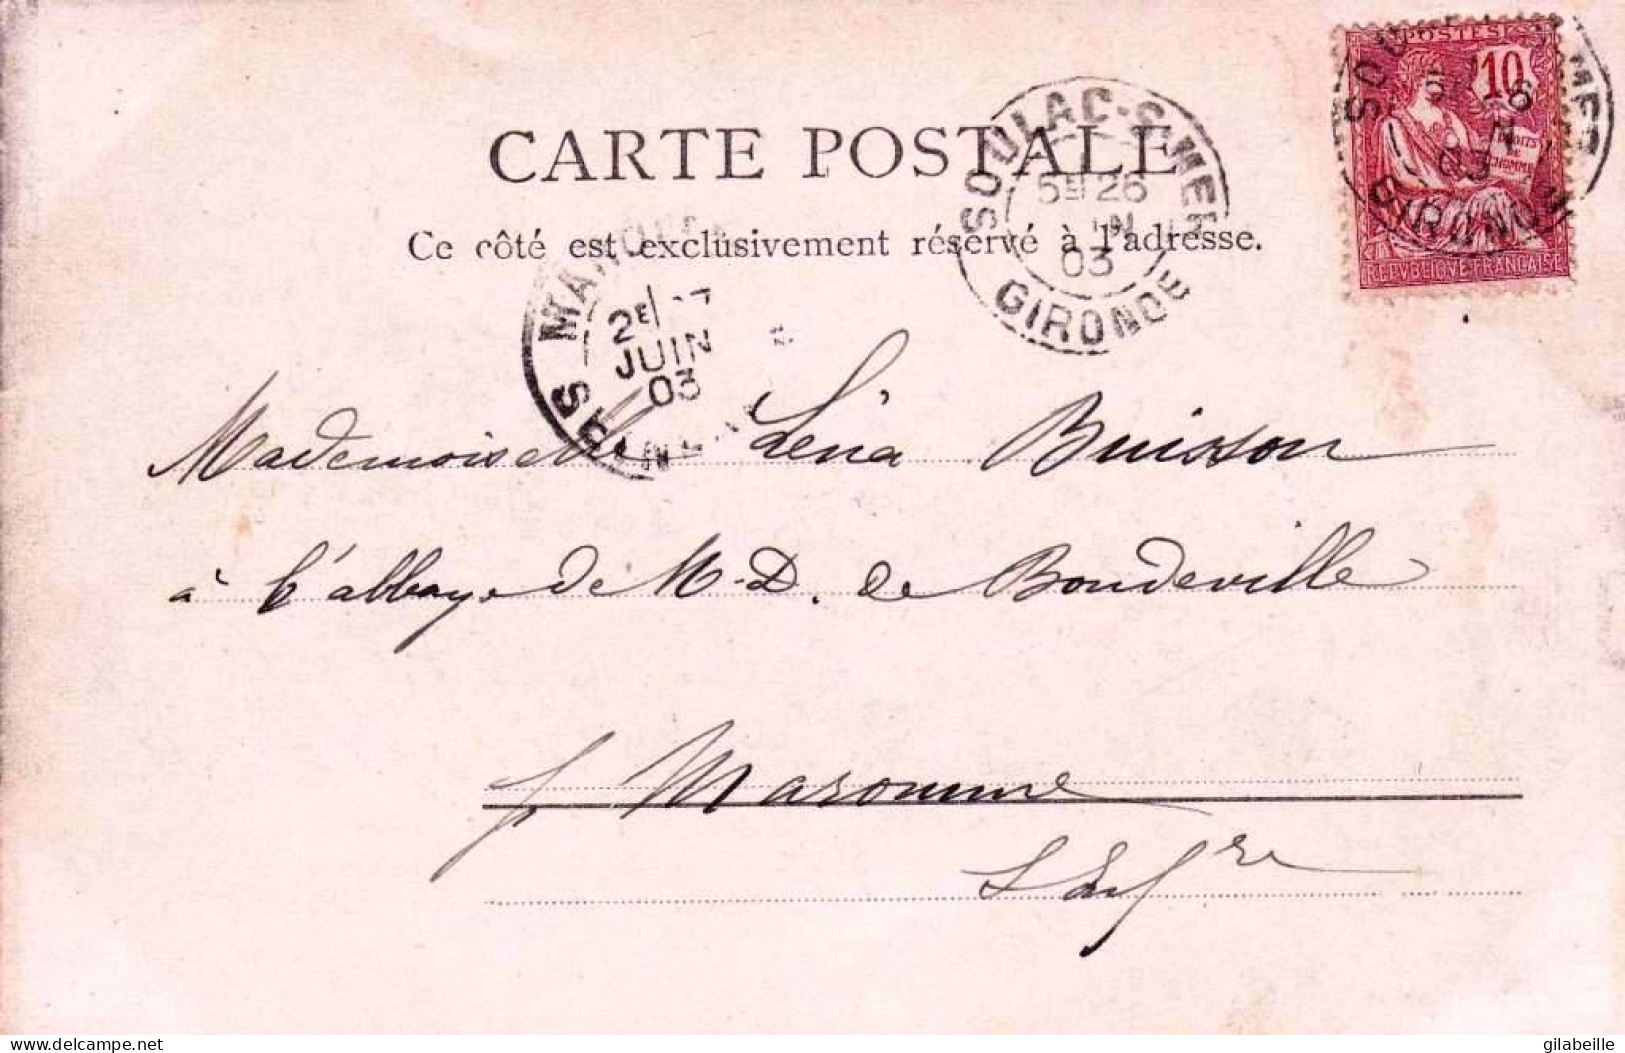 POSTES
10
DROITS DE L'HOMME
REPVBLIQVE FRANÇAISE
CARTE POSTALE
SOULAC-S-MER
5E 26
JUIN
03
GIRONDE
Ce côté est exclusivement réservé à l'adresse.
MAROMME
2E 27
JUIN
03
SEINE
Mademoiselle Léna Buisson
à l'abbaye de N.-D. de Bondeville
p. Maromme
S Infre
delcampe.net
gilabeille